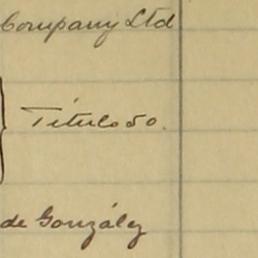 Company Ltd
Título 50.
de González